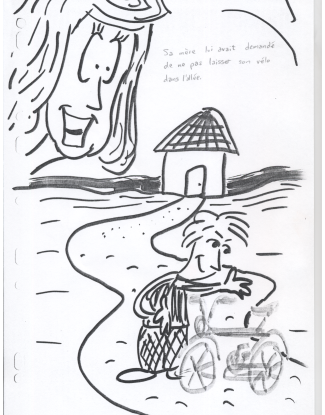 Sa mère lui avait demandé
de ne pas laisser son vélo
dans l'allée.